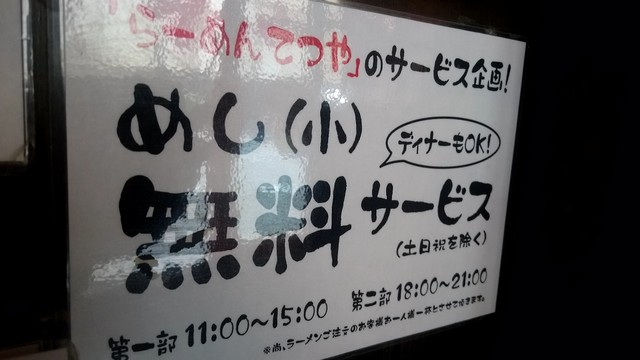 「らーめんてつや」のサービス企画!
めし(小)
ディナーもOK!
無料サービス
(土日祝を除く)
第一部 11:00〜15:00 第二部 18:00〜21:00
※尚、ラーメンご注文のお客様お一人様一杯とさせて頂きます。